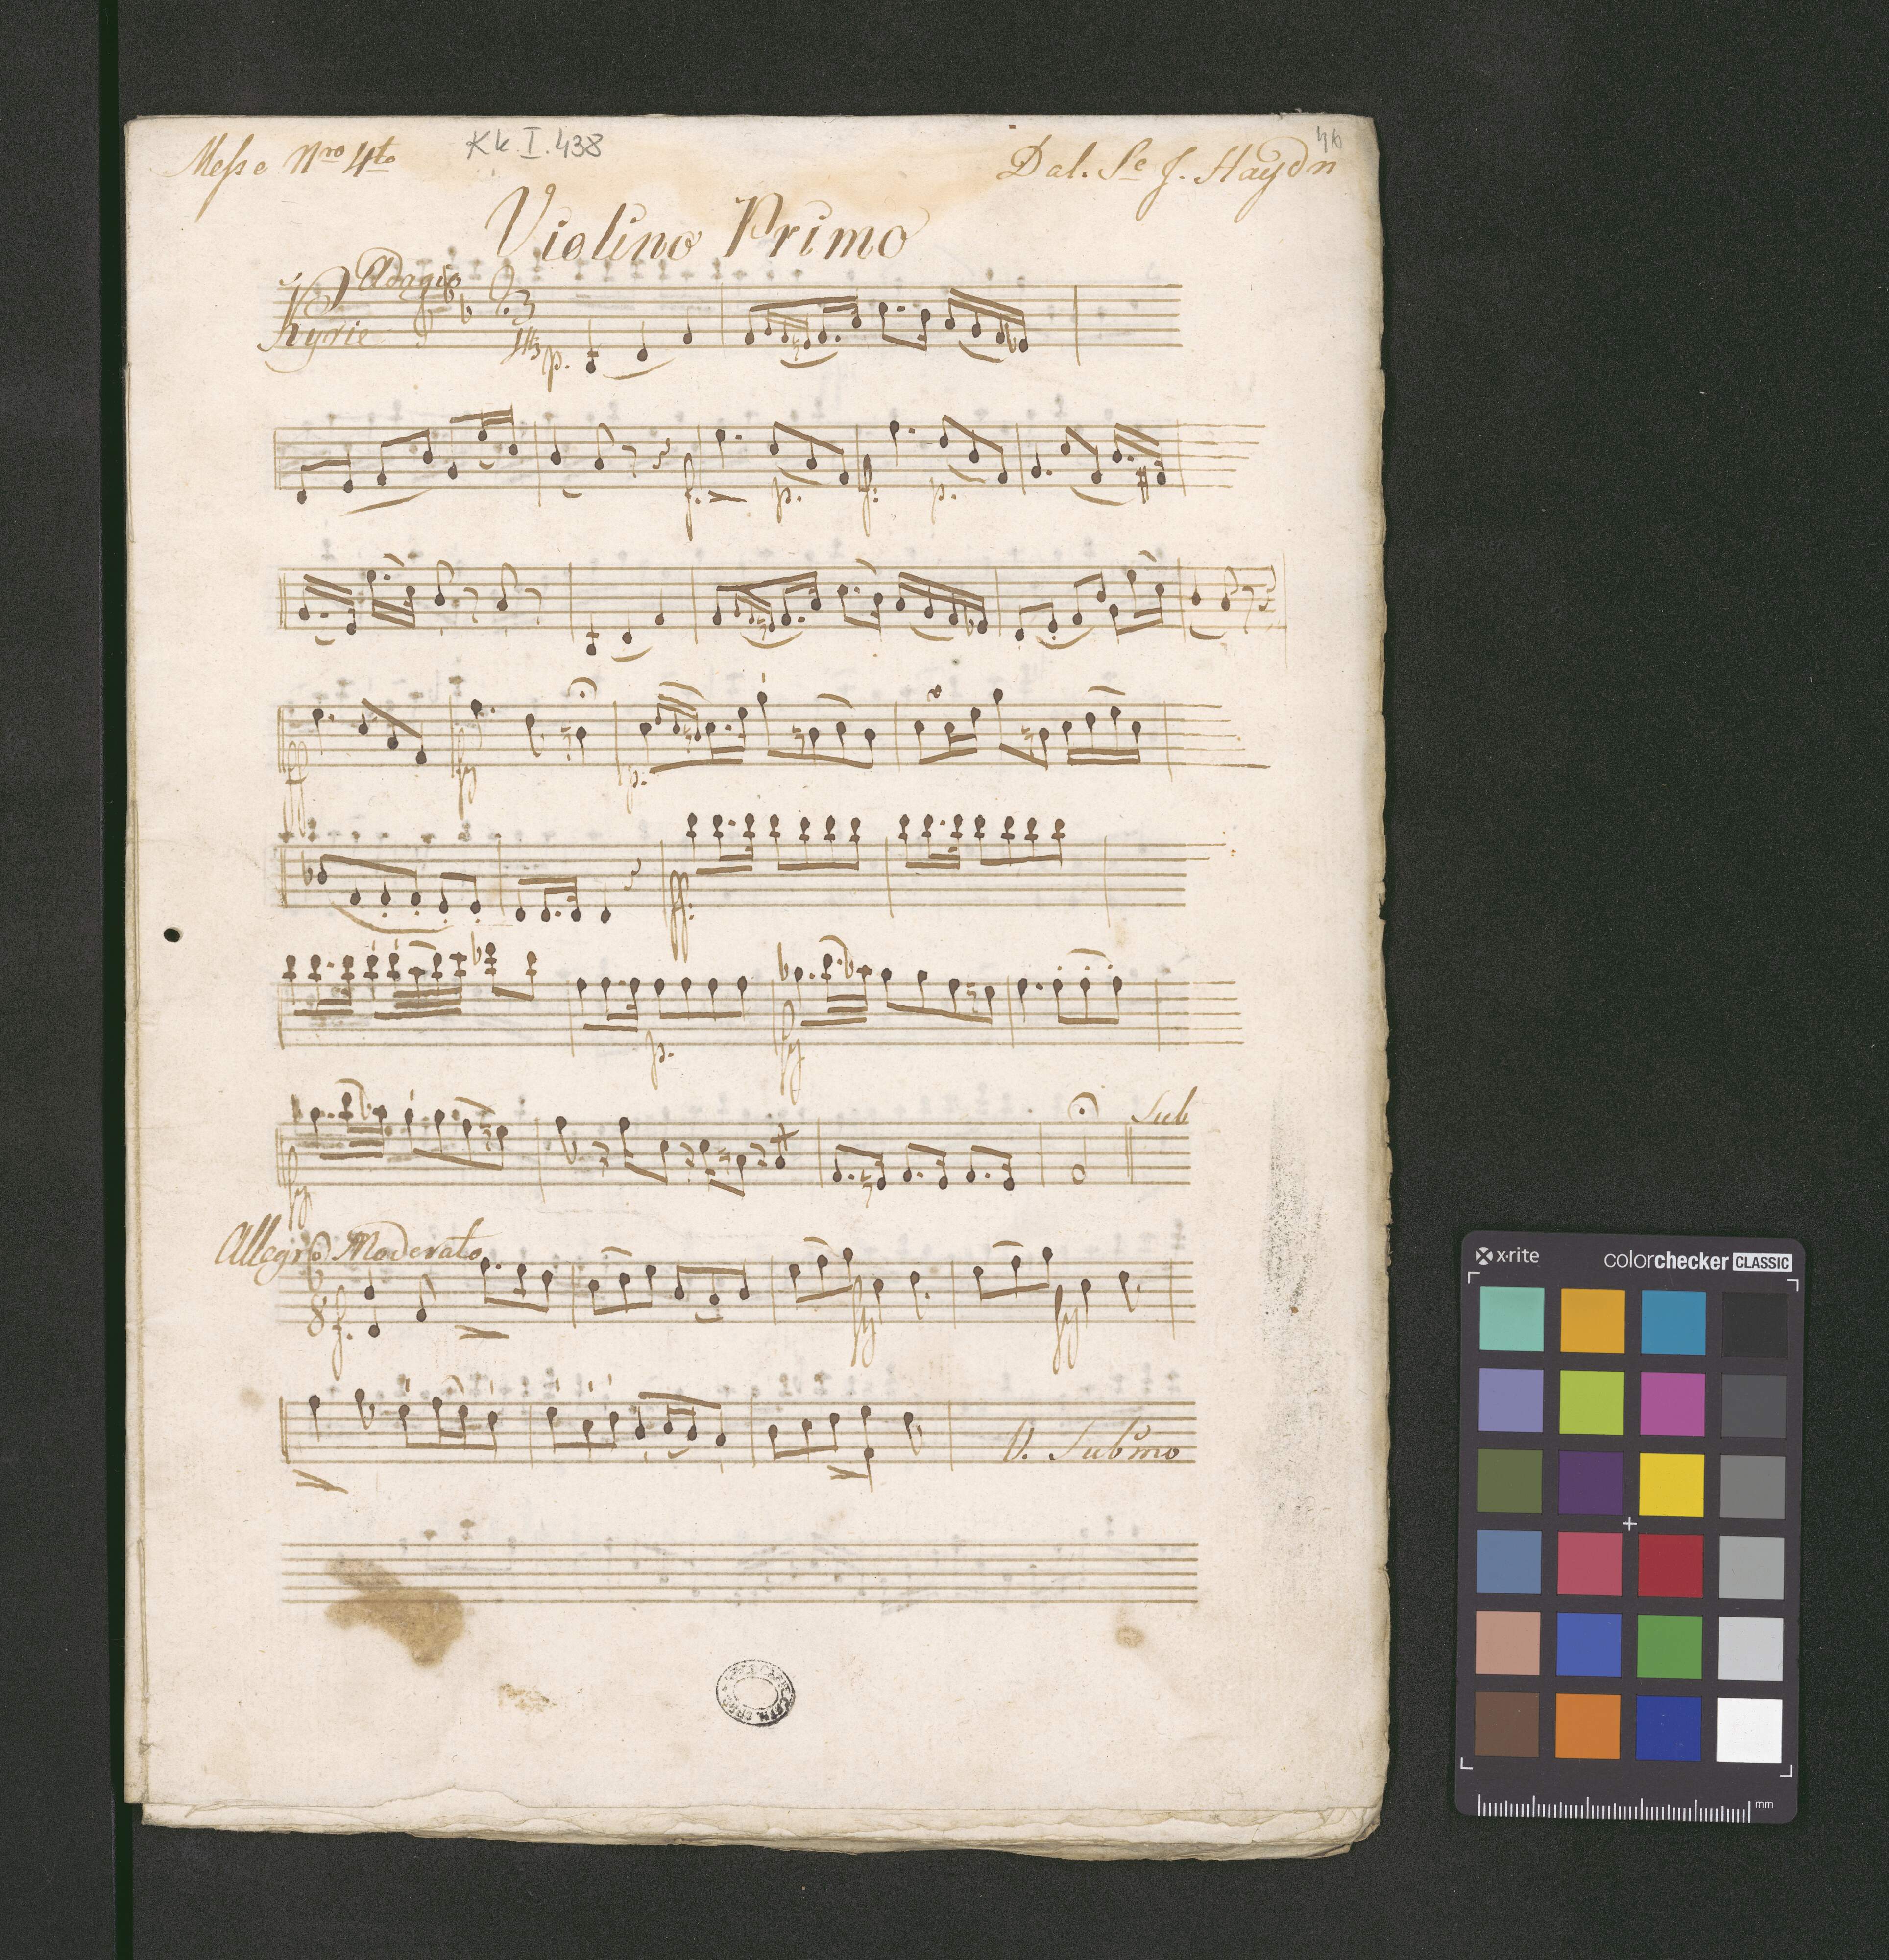 Messe Nro 4to
Kk I. 438
Dal. Se J. Haydn
Violino Primo
Adagio
Kyrie
3
p.
f. p. f. p.
ff fz p.
ff.
p. fz
fz
Sub
Allegro Moderato
6
8 f. fz fz
V. Subito
x·rite
colorchecker CLASSIC
mm